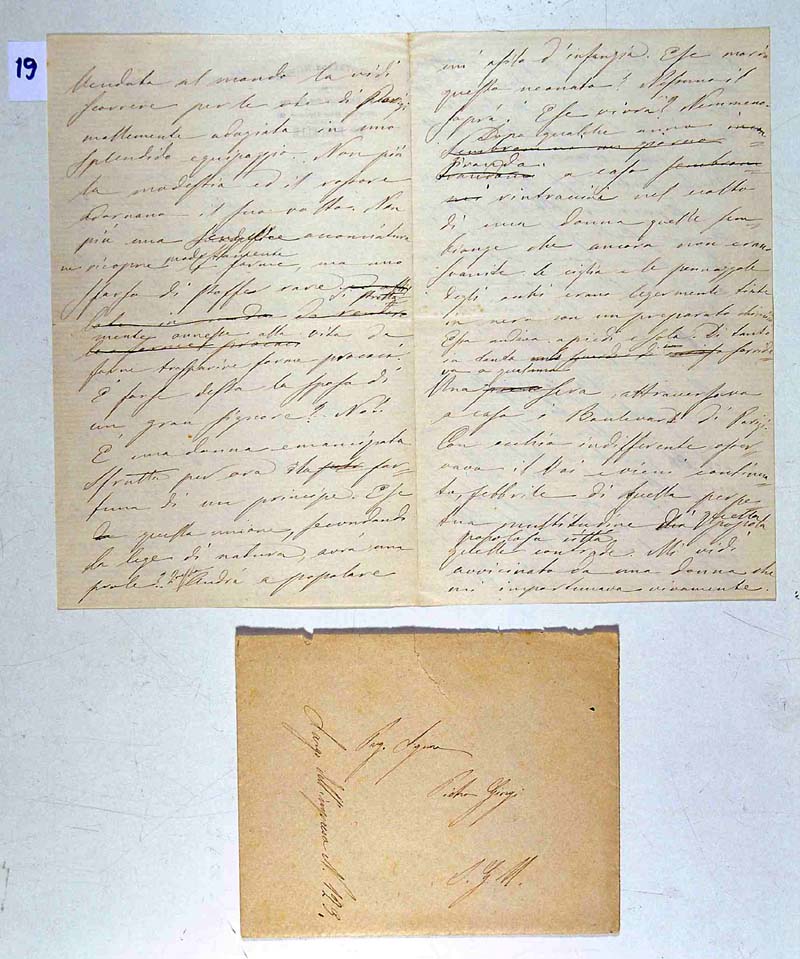 19
Venduta al mondo la vidi
scorrere per le vie di Parigi
mollemente adagiata in uno
splendido equipaggio. Non più
la modestia ed il rossore
adornano il suo volto. Non
più una semplice acconciatura
ne ricopre modestamente le forme, ma uno
sfarzo di stoffe rare
di strettamente annesse alla vita da
farne trasparire forme procaci.
È forse dessa la sposa di
un gran signore? No!
È una donna emancipata
sfrutta per ora la for-
tuna di un principe. E se
da questa unione, secondando
la legge di natura, avrà una
prole? Andrà a popolare
un asilo d'infanzia. E se morrà
questo neonato? Nessuno il
saprà! E se vivrà? Nemmeno.
Dopo qualche anno
a caso
rintracciai nel volto
di una donna quelle sem-
bianze che ancora non erano
svanite. Le ciglia e le
degli occhi erano legermente tinte
in nero con un preparato chimico
Essa andiva a piedi e sola. Di tanto
in tanto sorride-
va a qualcuno
Una sera, attraversava
a caso i Boulevard di Parigi.
Con occhio indifferente osser-
vava il vai e vieni continuo
febbrile di quella
multitudine
quelle contrade. Mi vidi
avvicinato da una donna che
mi importunava vivamente.
Pietro Giorgi
S. G. M.
Largo dell'ingresso N. 123.